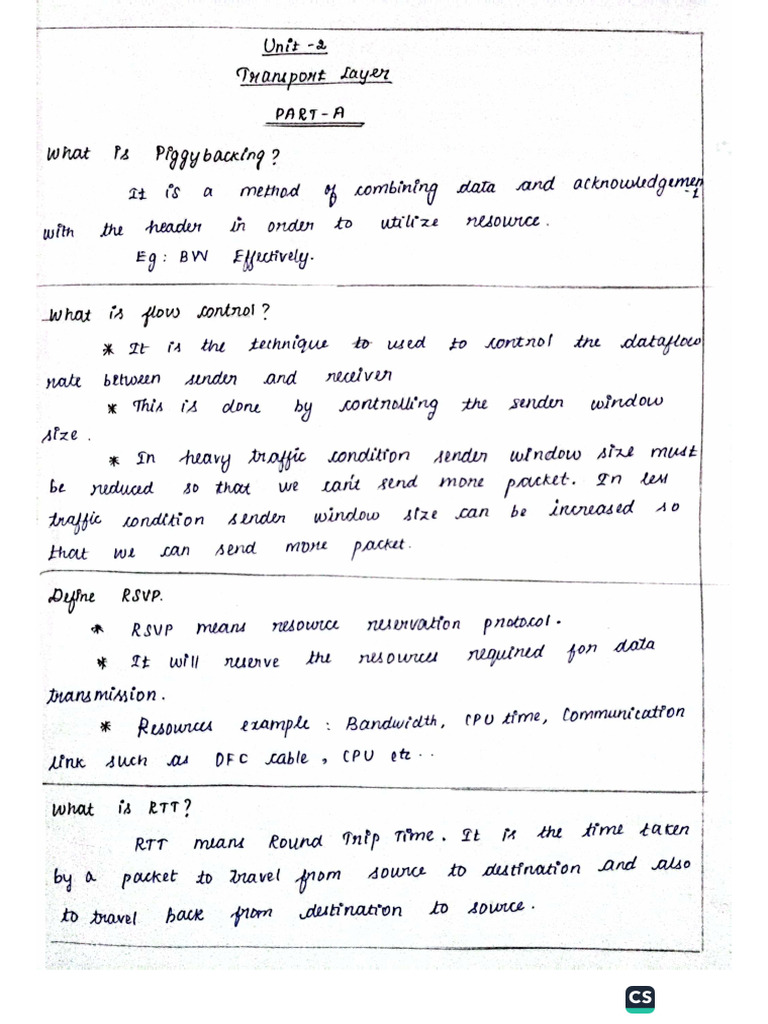 Unit-2
Transport Layer
PART-A
What is Piggybacking?
It is a method of combining data and acknowledgement
with the header in order to utilize resource.
Eg: BW Effectively.
What is flow control?
* It is the technique to used to control the dataflow
rate between sender and receiver
* This is done by controlling the sender window
size.
* In heavy traffic condition sender window size must
be reduced so that we can't send more packet. In less
traffic condition sender window size can be increased so
that we can send more packet.
Define RSVP.
* RSVP means resource reservation protocol.
* It will reserve the resources required for data
transmission.
* Resources example: Bandwidth, CPU time, Communication
link such as OFC cable, CPU etc..
What is RTT?
RTT means Round Trip Time. It is the time taken
by a packet to travel from source to destination and also
to travel back from destination to source.
CS